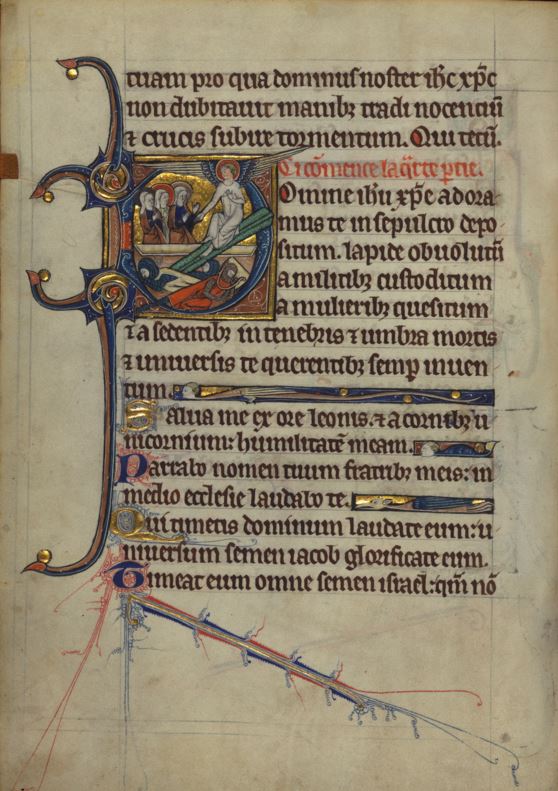 tuam pro qua dominus noster ih̅c xp̅c
non dubitauit manibꝫ tradi nocentiū
⁊ crucis subire tormentum. Qui tecū.
Ci cōmence la q̅rte p̲tie.
Domine ih̅u xp̅e adora
mus te in sepulcro depo
situm. lapide obuolutū
a militibꝫ custoditum
a mulieribꝫ quesitum
⁊ a sedentibꝫ in tenebris ⁊ umbra mortis
⁊ uniuersis te querentibꝫ semꝑ inuen
tum.
Salua me ex ore leonis. ⁊ a cornibꝫ u
nicornium: humilitatē meam.
Narrabo nomen tuum fratribꝫ meis: in
medio ecclesie laudabo te.
Qui timetis dominum laudate eum: u
niuersum semen iacob glorificate eum.
Timeat eum omne semen israel: qm̅ nō